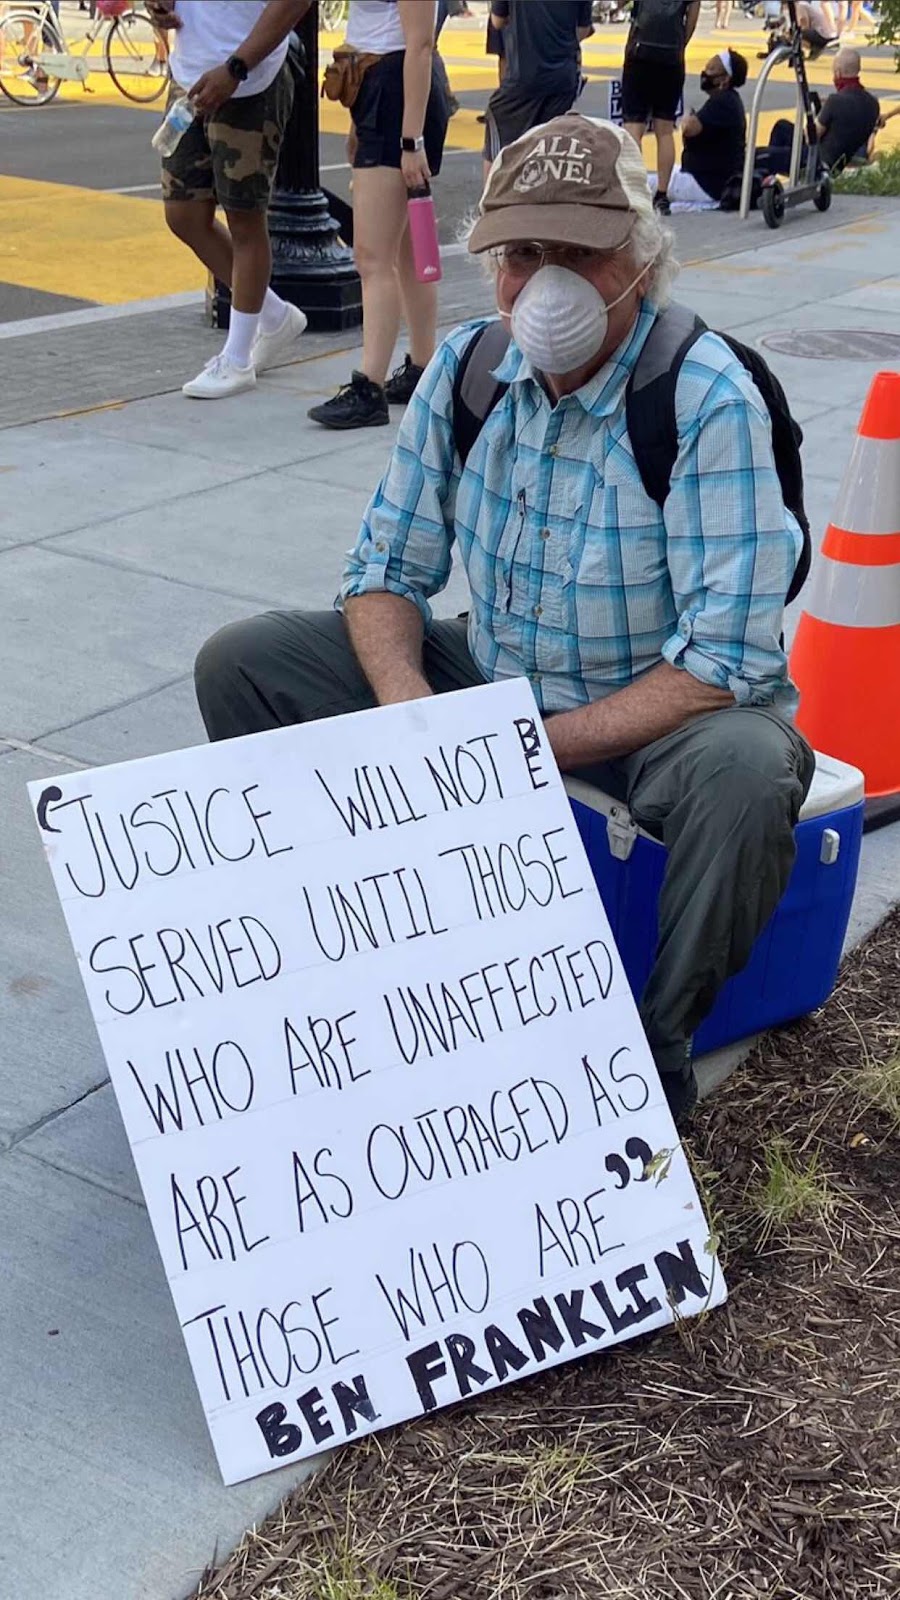 ALL-
ONE!
"JUSTICE WILL NOT BE
SERVED UNTIL THOSE
WHO ARE UNAFFECTED
ARE AS OUTRAGED AS
THOSE WHO ARE"
BEN FRANKLIN